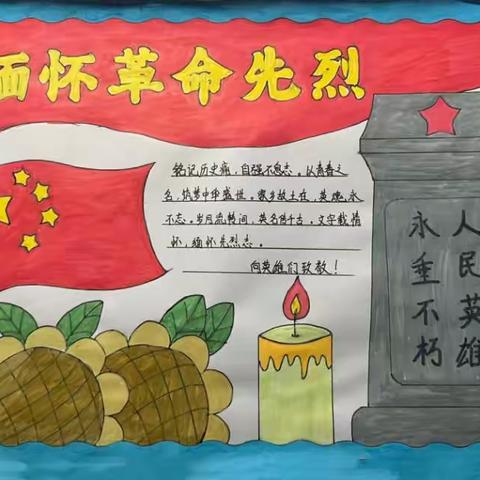 缅怀革命先烈
铭记历史痛，自强不息志。以青春之
名，筑梦中华盛世。家乡故土在，英魂永
不忘。岁月流转间，英名传千古。文字载情
怀，缅怀先烈志。
向英雄们致敬！
人民英雄
永垂不朽